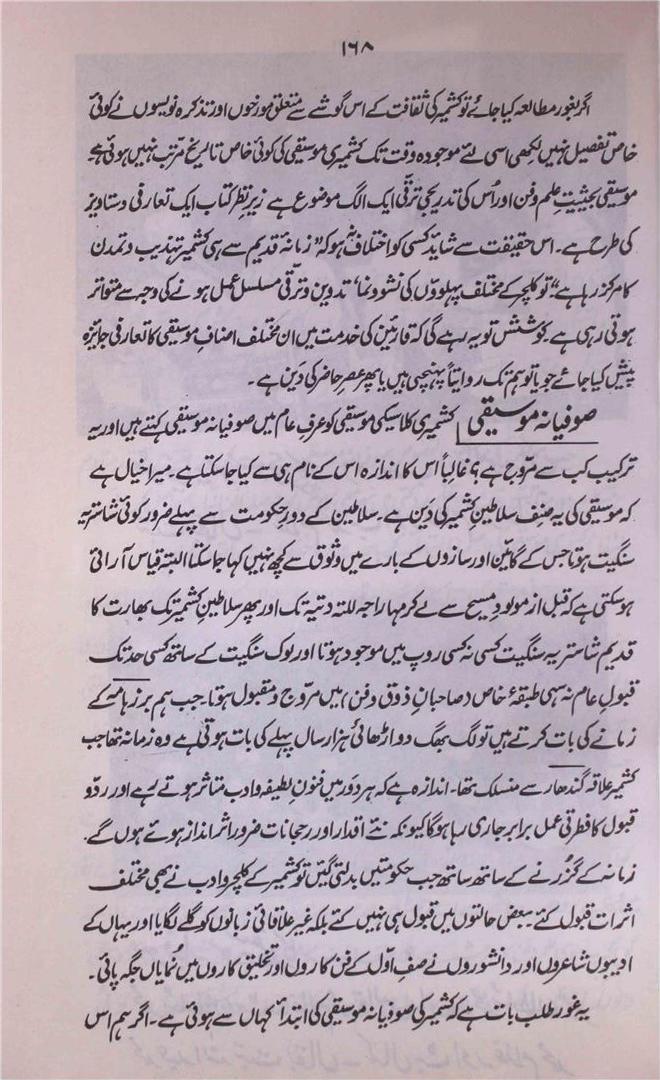 ۱۶۸
اگر بغور مطالعہ کیا جائے تو کشمیر کی ثقافت کے اس گوشے سے متعلق مورخوں اور تذکرہ نویسوں نے کوئی
خاص تفصیل نہیں لکھی اسی لئے موجودہ وقت تک کشمیری موسیقی کی کوئی خاص تاریخ مرتب نہیں ہوئی ہے۔
موسیقی بحیثیتِ علم و فن اور اُس کی تدریجی ترقی ایک الگ موضوع ہے زیرِ نظر کتاب ایک تعارفی دستاویز
کی طرح ہے۔ اس حقیقت سے شاید کسی کو اختلاف نہ ہو کہ "زمانۂ قدیم سے ہی کشمیر تہذیب و تمدن
کا مرکز رہا ہے" تو کلچر کے مختلف پہلوؤں کی نشوونما، تدوین و ترقی مسلسل عمل ہونے کی وجہ سے متواتر
ہوتی رہی ہے۔ کوشش تو یہ رہے گی کہ قارئین کی خدمت میں ان مختلف اصنافِ موسیقی کا تعارفی جائزہ
پیش کیا جائے جو یا تو ہم تک روایتاً پہنچی ہیں یا پھر عصرِ حاضر کی دَین ہے۔
صوفیانہ موسیقی کشمیری کلاسیکی موسیقی کو عرفِ عام میں صوفیانہ موسیقی کہتے ہیں اور یہ
ترکیب کب سے مروّج ہے؟ غالباً اس کا اندازہ اس کے نام ہی سے کیا جا سکتا ہے۔ میرا خیال ہے
کہ موسیقی کی یہ صنف سلاطینِ کشمیر کی دَین ہے۔ سلاطین کے دورِ حکومت سے پہلے ضرور کوئی شاستریہ
سنگیت ہوتا جس کے گامین اور سازوں کے بارے میں وثوق سے کچھ نہیں کہا جا سکتا البتہ قیاس آرائی
ہو سکتی ہے کہ قبل از مولودِ مسیح سے لے کر مہاراجہ للتہ دتیہ تک اور پھر سلاطینِ کشمیر تک بھارت کا
قدیم شاستریہ سنگیت کسی نہ کسی روپ میں موجود ہوتا اور لوک سنگیت کے ساتھ کسی حد تک
قبولِ عام نہ سہی طبقۂ خاص (صاحبانِ ذوق و فن) میں مروّج و مقبول ہوتا۔ جب ہم برزہامہ کے
زمانے کی بات کرتے ہیں تو لگ بھگ دو اڑھائی ہزار سال پہلے کی بات ہوتی ہے وہ زمانہ تھا جب
کشمیر علاقہ گندھار سے منسلک تھا۔ اندازہ ہے کہ ہر دَور میں فنونِ لطیفہ و ادب متاثر ہوتے رہے اور ردّ و
قبول کا فطرتی عمل برابر جاری رہا ہو گا کیونکہ نئے اقدار اور رجحانات ضرور اثر انداز ہوئے ہوں گے۔
زمانہ کے گُزرنے کے ساتھ ساتھ جب حکومتیں بدلتی گئیں تو کشمیر کے کلچر و ادب نے بھی مختلف
اثرات قبول کئے۔ بعض حالتوں میں قبول ہی نہیں کئے بلکہ غیر علاقائی زبانوں کو گلے لگایا اور یہاں کے
ادیبوں شاعروں اور دانشوروں نے صفِ اوّل کے فن کاروں اور تخلیق کاروں میں نُمایاں جگہ پائی۔
یہ غور طلب بات ہے کہ کشمیر کی صوفیانہ موسیقی کی ابتدا کہاں سے ہوئی ہے۔ اگر ہم اس